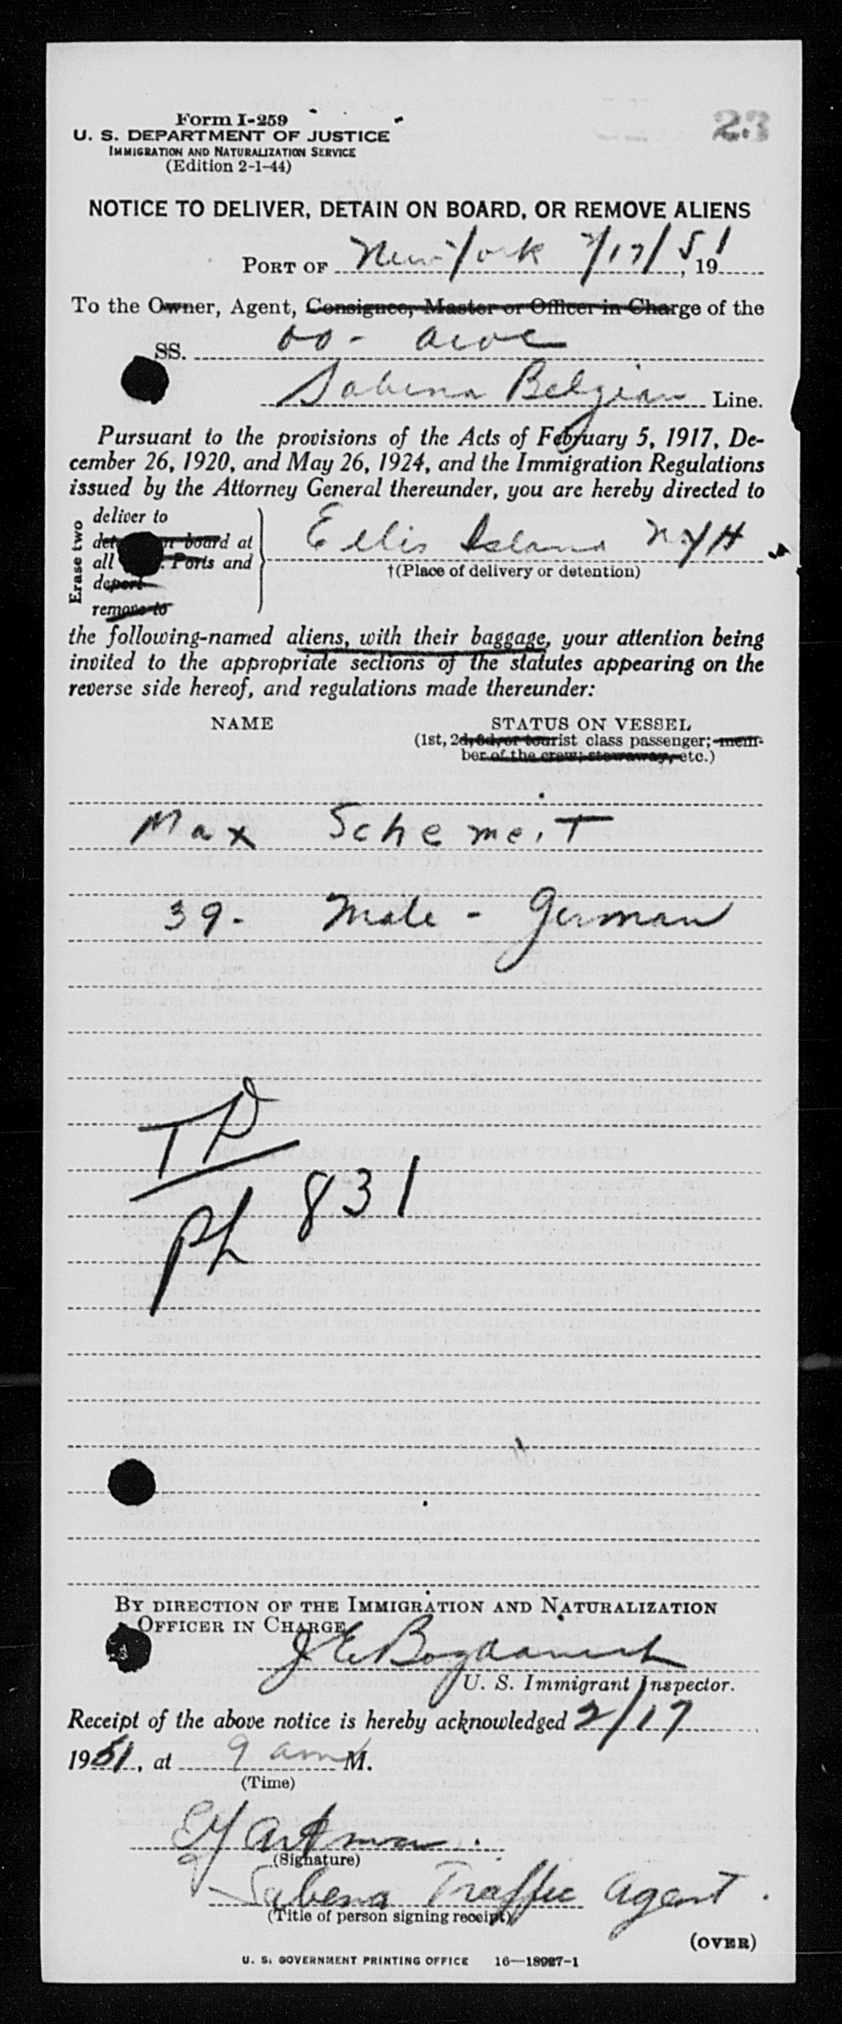 23
Form I-259
U. S. DEPARTMENT OF JUSTICE
IMMIGRATION AND NATURALIZATION SERVICE
(Edition 2-1-44)
NOTICE TO DELIVER, DETAIN ON BOARD, OR REMOVE ALIENS
PORT OF New York 2/17/51, 19
To the Owner, Agent, Consignee, Master or Officer in Charge of the
SS. OO-
Sabena Belgian Line.
Pursuant to the provisions of the Acts of February 5, 1917, De-
cember 26, 1920, and May 26, 1924, and the Immigration Regulations
issued by the Attorney General thereunder, you are hereby directed to
Erase two
deliver to
detain on board at
all Ports and
deport
remove to
Ellis Island NYH
†(Place of delivery or detention)
the following-named aliens, with their baggage, your attention being
invited to the appropriate sections of the statutes appearing on the
reverse side hereof, and regulations made thereunder:
NAME STATUS ON VESSEL
(1st, 2d, 3d, or tourist class passenger; mem-
ber of the crew; stowaway, etc.)
Max Schemeit
39 - Male - German
TD
Ph 831
BY DIRECTION OF THE IMMIGRATION AND NATURALIZATION
OFFICER IN CHARGE
U. S. Immigrant Inspector.
Receipt of the above notice is hereby acknowledged 2/17
1951, at 9 am M.
(Time)
(Signature)
Sabena Traffic Agent.
(Title of person signing receipt)
(OVER)
U. S. GOVERNMENT PRINTING OFFICE 16—18927-1